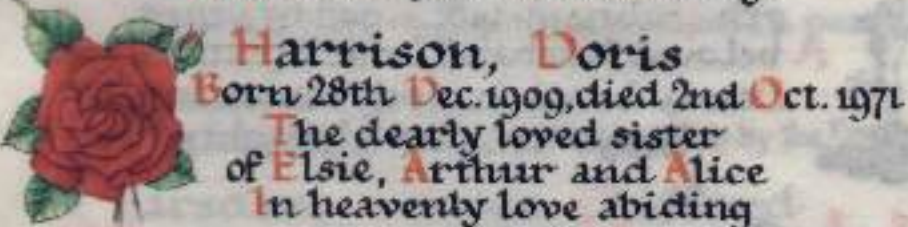 Harrison, Doris
Born 28th Dec. 1909, died 2nd Oct. 1971
The dearly loved sister
of Elsie, Arthur and Alice
In heavenly love abiding